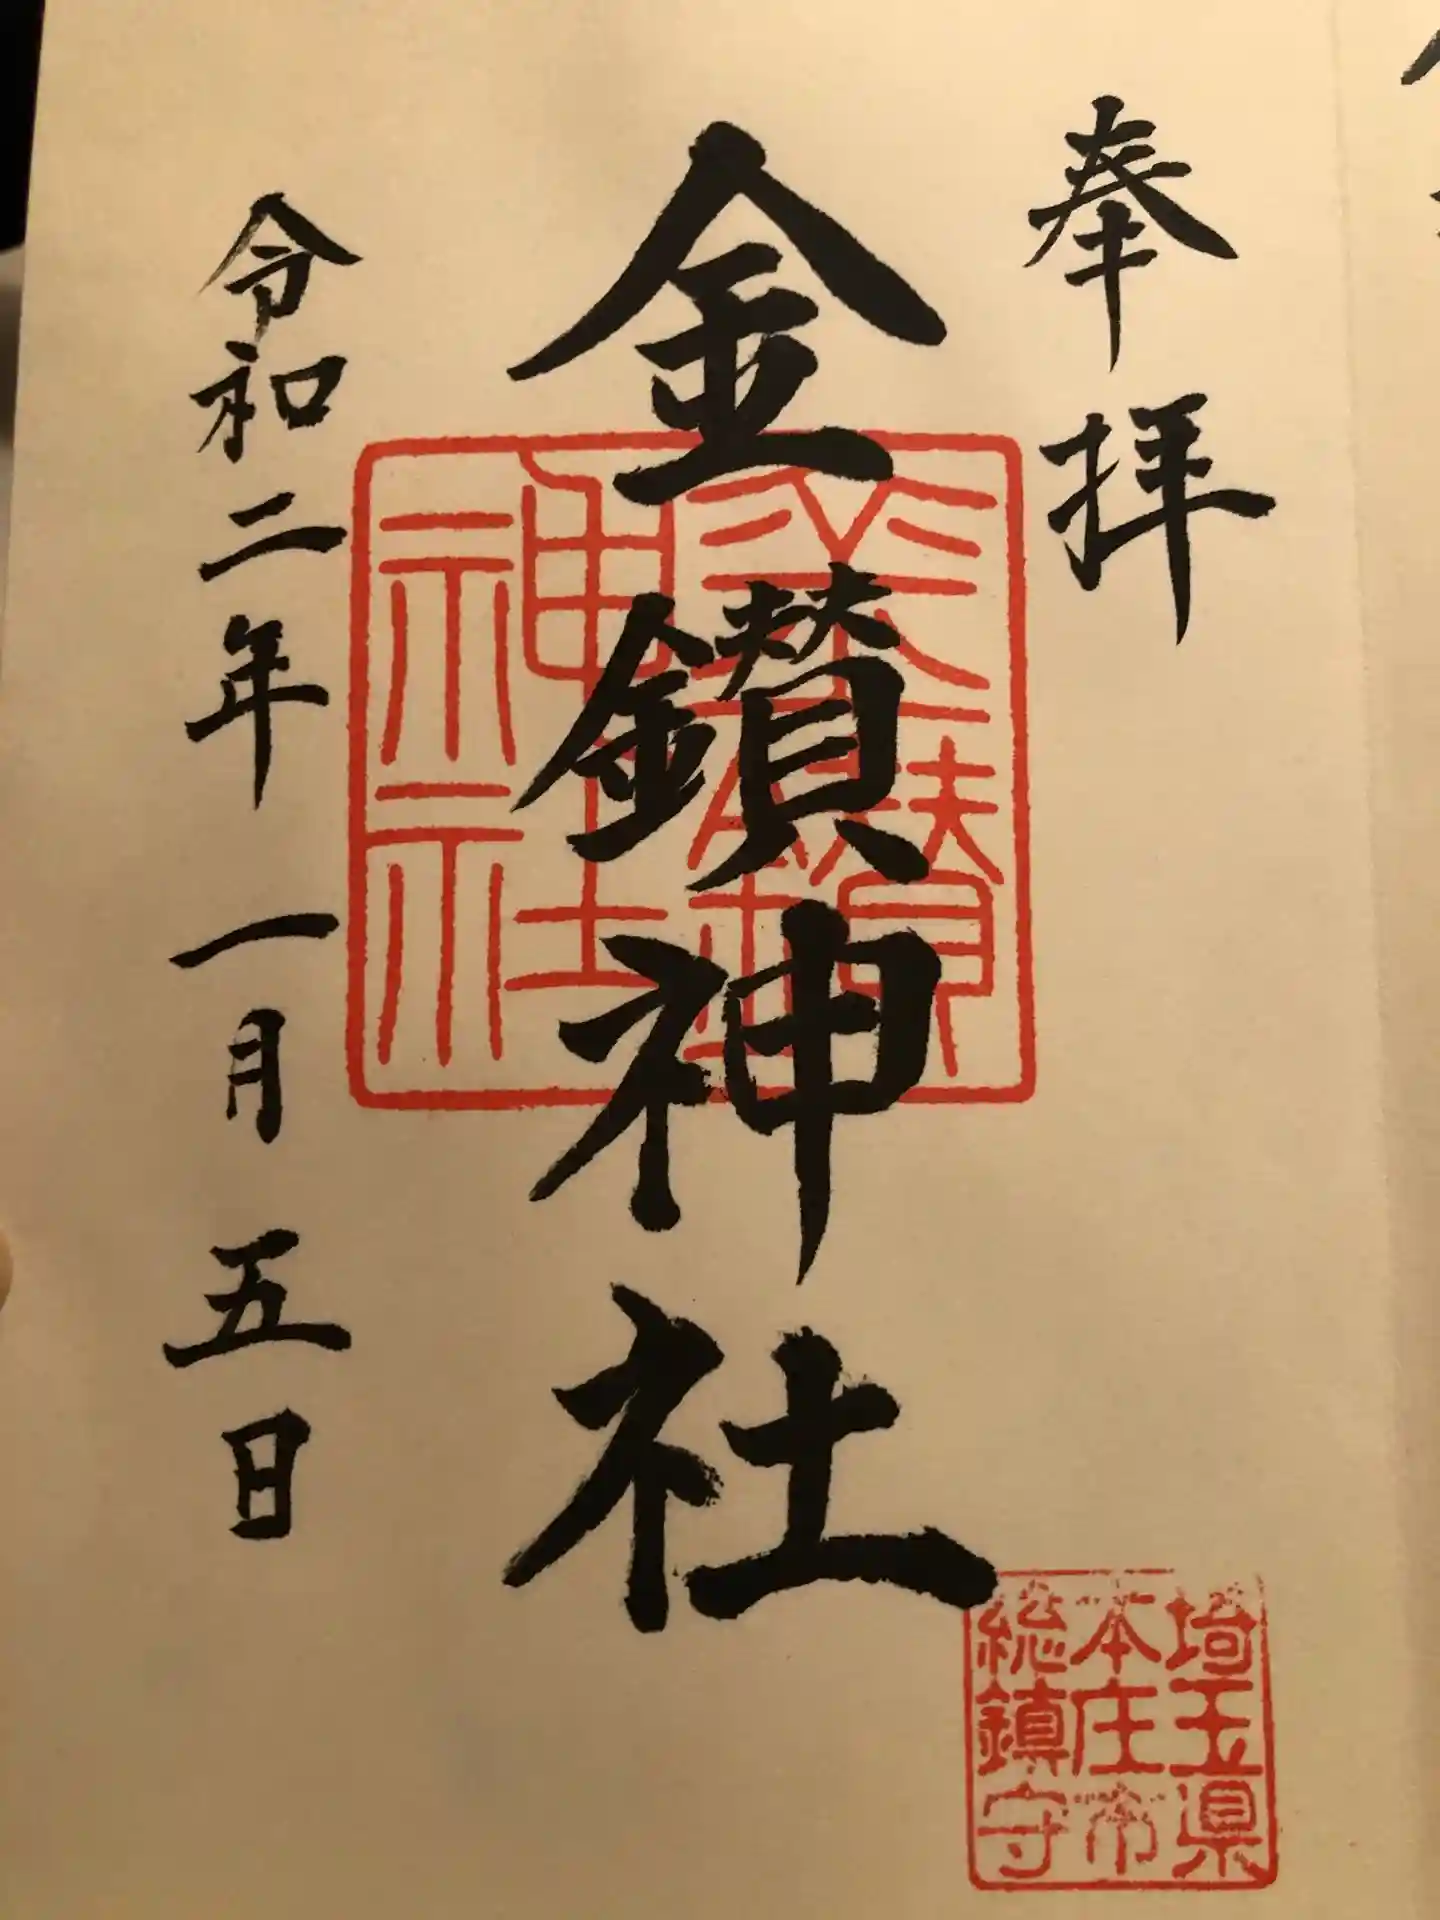 奉拝
金鑚神社
令和二年一月五日
埼玉県
本庄市
総鎮守